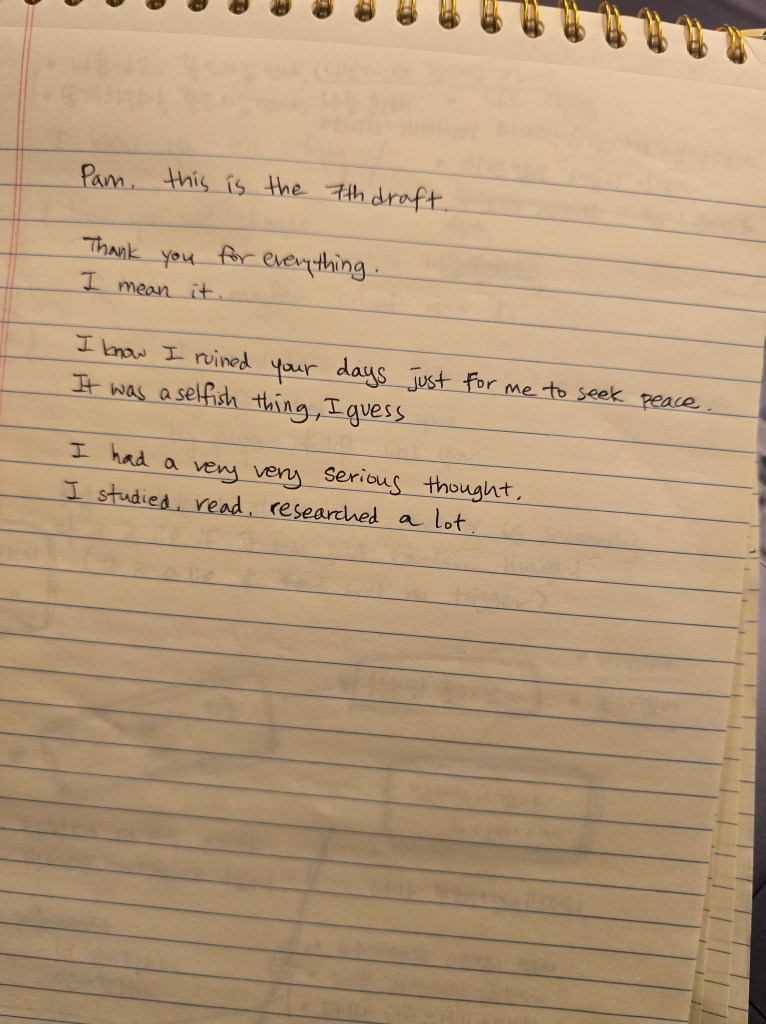 Pam, this is the 7th draft.
Thank you for everything.
I mean it.
I know I ruined your days just for me to seek peace.
It was a selfish thing, I guess
I had a very very serious thought.
I studied, read, researched a lot.